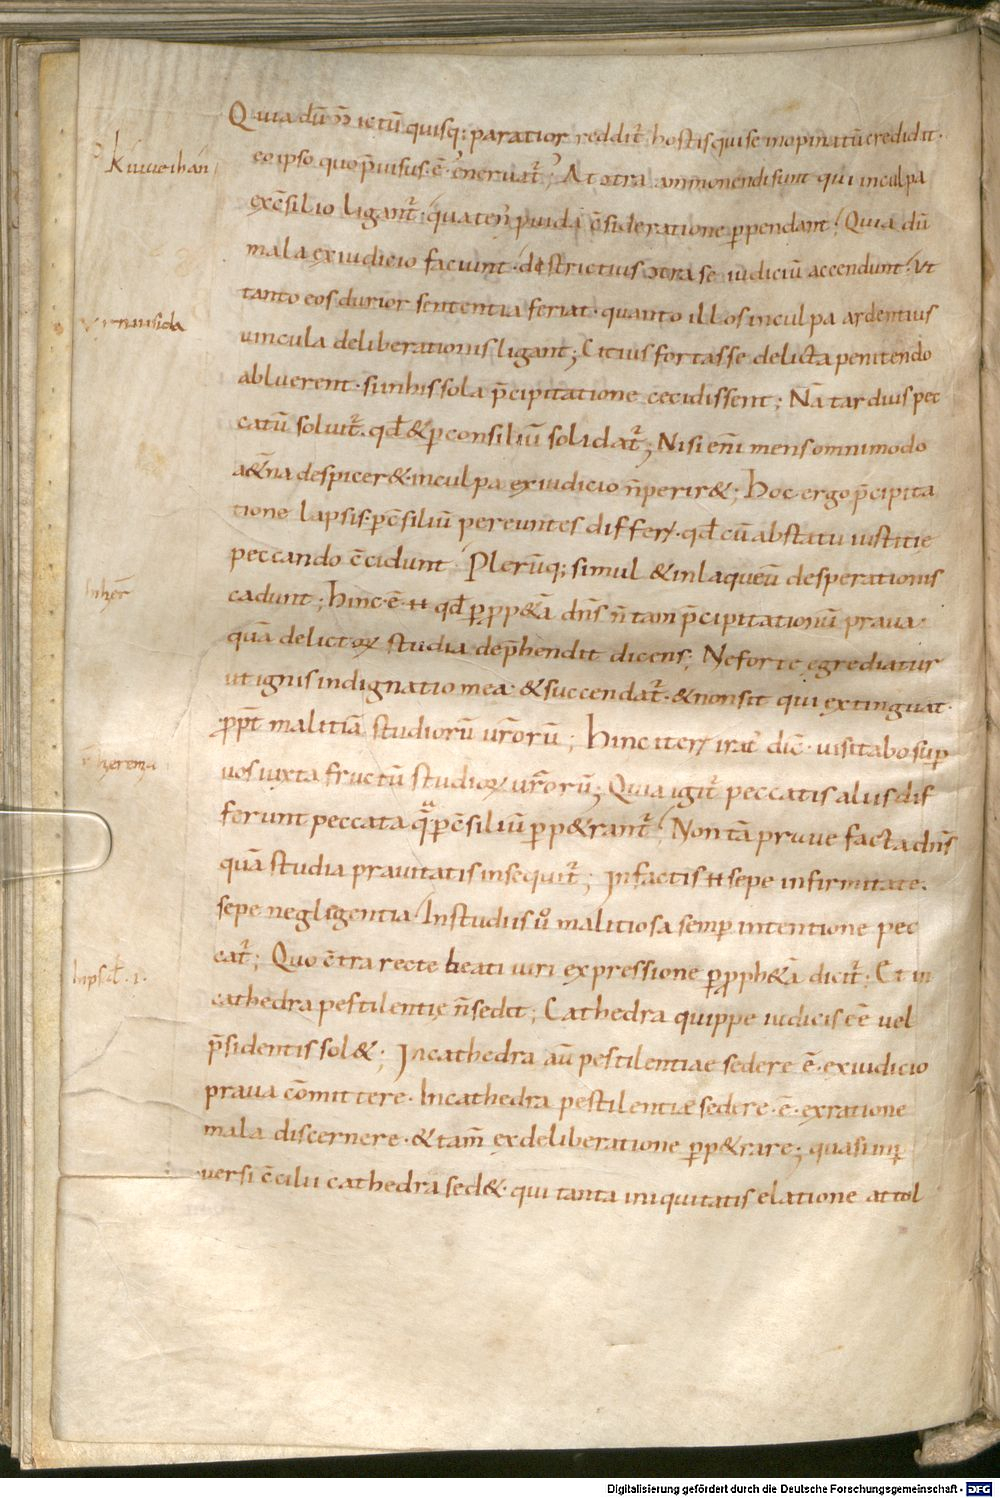 Quia dū ↄ̄ ictū quisq; paratior reddit᷑ hostis qui se inopinatū credidit·
Kiuueihan
eo ipso quo p̄uisus· ē· eneruat᷑; At ↄtra ammonendi sunt qui in culpa
ex c̄silio ligant᷑· quaten᷒ puida c̄sideratione ꝑpendant· Quia dū
mala ex iudicio faciunt· districtius ↄtra se iudiciū accendunt· Vt
tanto eos durior sententia feriat· quanto illos in culpa ardentius
uincula deliberationis ligant; Citius fortasse delicta penitendo
abluerent· si in his sola p̄cipitatione cecidissent; Nā tardius pec
catū soluit᷑· qd̄ & ꝑ consiliū solidat᷑; Nisi eni mens omnimodo
a&̄na despicer&· in culpa ex iudicio n̄ perir&; Hoc ergo p̄cipita
tione lapsis· ꝑ c̄siliū pereuntes differꝝ· qd̄ cū ab statu iustitię
peccando c̄cidunt· Plerūq; simul & in laqueū desperationis
cadunt; Hinc· ē· ҥ qd̄ ꝑ ꝓph&ā dn̄s n̄ tam p̄cipitationū praua·
quā delictoꝝ studia dep̄hendit dicens; Ne forte egrediatur
ut ignis indignatio mea· & succendat᷑· & non sit qui extinguat·
ꝓpt̄ malitiā studiorū ur̄orū; Hinc iterꝝ irat᷒ dic̄· uisitabo suꝑ
uos iuxta fructū studioꝝ ur̄orū; Quia igit᷑ peccatis aliis dif
ferunt peccata quę ꝑ c̄siliū ꝑp&rant᷑· Non tā praue facta dn̄s
quā studia prauitatis insequit᷑; In factis ҥ sepe infirmitate·
sepe negligentia· In studiis uͦ malitiosa semꝑ intentione pec
cat᷑; Quo c̄tra recte beati uiri expressione ꝑ ꝓph&ā dicit᷑; Et in
cathedra pestilentię n̄ sedit; Cathedra quippe iudicis eē uel
p̄sidentis sol&; In cathedra aū pestilentiae sedere· ē· ex iudicio
praua cōmittere· In cathedra pestilentiæ sedere· ē· ex ratione
mala discernere· & tam̄ ex deliberatione ꝑp&rare; quasi in ꝑ
uersi c̄cilii cathedra sed&· qui tanta iniquitatis elatione attol
Digitalisierung gefördert durch die Deutsche Forschungsgemeinschaft - DFG